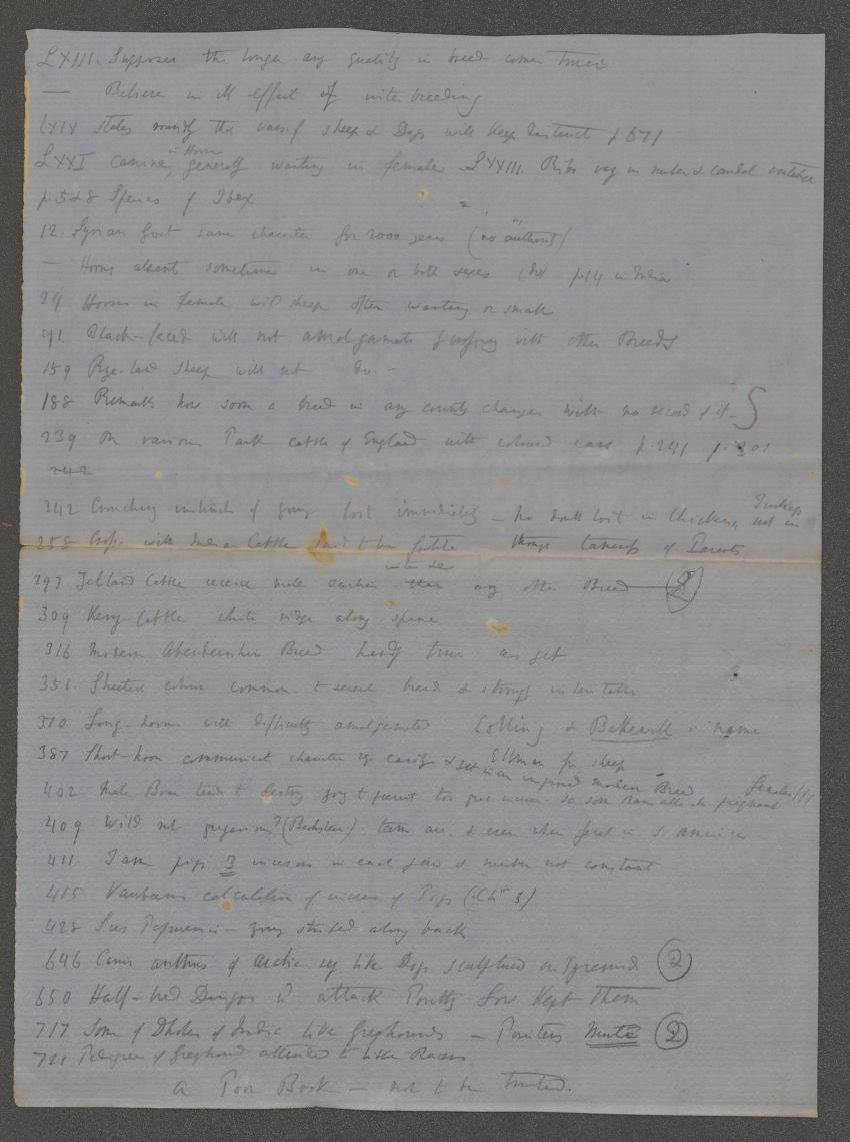 LXIII. Supposes the longer any quality in breed comes truer
— Believes in ill effect of interbreeding
LXIX states mong the var. of sheep & Dogs will keep distinct p 571
LXXI Canine in Horse, generally wanting in females LXXIII. Ribs vary in number & caudal vertebræ
p. 5 & 8 Species of Ibex
12. Syrian Goat same character for 2000 years (no authority)
— Horns absent sometimes in one or both sexes p. 14 in India
29 Horns in female wild sheep often wanting or small
91. Black-faced will not amalgamate p crossing with other Breeds
159 Rye-land sheep will not Do. —
188 Remarks how soon a breed in any county changes with no record of it —
239 On various Park cattle of England with coloured ears p. 241 p. 301
242
342 Crouching instincts of young lost immediately — No doubt lost in Chickens, Turkeys not in
258 Cross with Indian Cattle said to be fertile though of Parents
297 Jutland Cattle receive male earlier than any other Breed (2)
309 Kerry Cattle white ridge along spine
316 Modern Aberdeenshire Breed hardly true as yet
351. Sheeted colour common to several breeds & strongly inheritable
370 Long-horns with difficulty amalgamated Colling & Bakewell name
387 Short-horn communicate character very easily & Ellman for sheep
402 Male Boar tends to destroy young to prevent too great increase. So some Rams attack pregnant females!!!
409 Wild not gregarious? (Bechstein) tame are. & even when feral in S. America
411 Tame pigs 3 incisors in each jaw & number not constant
415 Vauban's calculation of increase of Pigs (Ch. 3)
428 Sus Papuensis — young striped along back
646 Canis anthus of Arctic reg like Dogs sculptured on Pyramid (2)
650 Half-bred Dingos attack Poultry Lord Kept them
717 Some of Dholes of India like Greyhounds — Pointers Mute (2)
721 Pedigree of Greyhound attended to like Racers.
A Poor Book — not to be trusted.